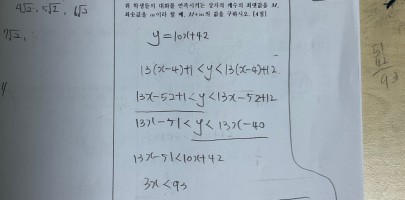 4√2, 5√2, 6√2
7√2,
위 학생들이 대화를 만족시키는 상자의 개수의 최댓값을 M,
최솟값을 m이라 할 때, M+m의 값을 구하시오. [4점]
y=10x+42
13(x-4)+1<y<13(x-4)+12
13x-52+1<y<13x-52+12
13x-51<y<13x-40
13x-51<10x+42
3x<93
51
42
93